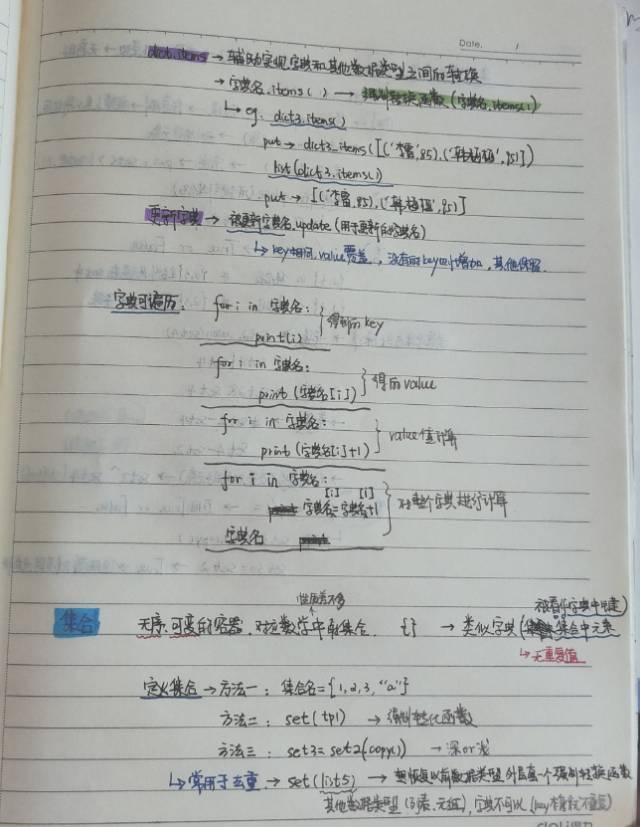 Date. /
dict.items → 辅助实现字典和其他数据类型之间的转换
→ 字典名.items() → 强制转换函数(字典名.items())
↳ eg. dict3.items()
put → dict3_items([('李雷',85),('韩梅梅',95)])
list(dict3.items())
put → [('李雷',85),('韩梅梅',95)]
更新字典 → 被更新字典名.update(用于更新的字典名)
↳ key相同,value覆盖,没有的key即增加,其他保留.
字典可遍历: for i in 字典名: 得到的key
print(i)
for i in 字典名:
print(字典名[i]) 得到value
for i in 字典名: value值计算
print(字典名[i]+1)
for i in 字典名:
字典名[i]=字典名[i]+1 对整个字典进行计算
字典名
性质差不多
被看作字典中键)
集合 无序.可变的容器.对应数学中的集合. {} → 类似字典(集合中元素
↳ 无重复值
定义集合 → 方法一: 集合名={1,2,3,"a"}
方法二: set(tp1) → 强制转化函数
方法三: set3=set2(copy()) → 深or浅
↳ 常用于去重 → set(list5) → 想恢复以前数据类型外层套一个强制转换函数
其他数据类型(列表.元组),字典不可以(key本身就不重复)